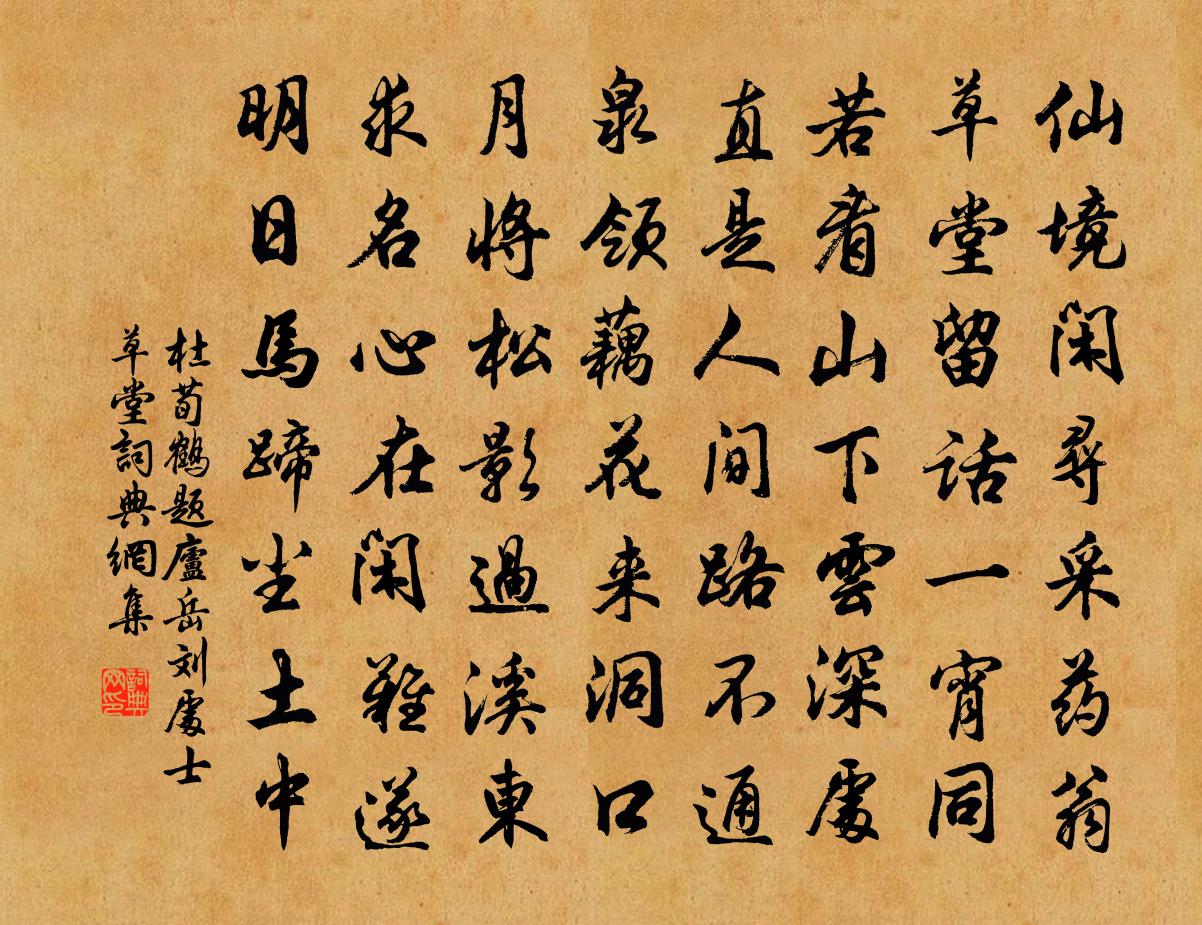 仙境闲尋采药翁
草堂留话一宵同
若看山下雲深處
直是人间路不通
泉领藕花来洞口
月将松影過溪東
求名心在闲難遂
明日馬蹄尘土中
杜荀鹤题廬岳刘處士
草堂詞典網集
詞典网印